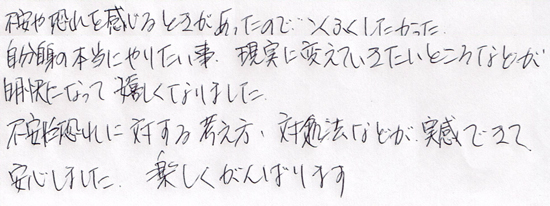 不安や恐れを感じるときがあったので、なくしたかった。
自分自身の本当にやりたい事、現実に変えていきたいところなどが
明快になって嬉しくなりました。
不安や恐れに対する考え方、対処法などが、実感できて、
安心しました。楽しくがんばります